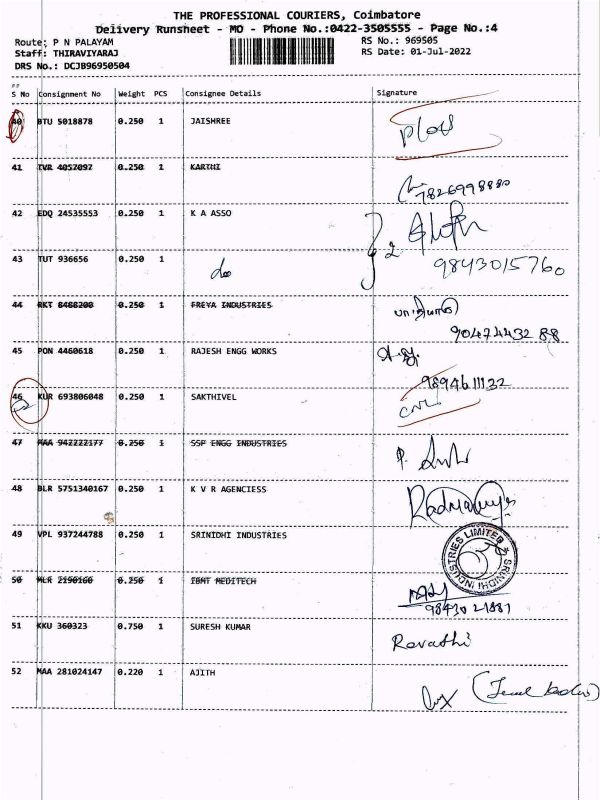 THE PROFESSIONAL COURIERS, Coimbatore
Delivery Runsheet - MO - Phone No.:0422-3505555 - Page No.:4
Route: P N PALAYAM
RS No.: 969505
Staff: THIRAVIYARAJ
RS Date: 01-Jul-2022
DRS No.: DCJB96950504
S No Consignment No Weight PCS Consignee Details Signature
40 BTU 5018878 0.250 1 JAISHREE
41 TVR 4057097 0.250 1 KARTHI
7826998880
42 EDQ 24535553 0.250 1 K A ASSO
2
43 TUT 936656 0.250 1
9843015760
44 RKT 8488200 0.250 1 FREYA INDUSTRIES
9047443288
45 PON 4460618 0.250 1 RAJESH ENGG WORKS
9894611132
46 KUR 693806048 0.250 1 SAKTHIVEL
47 MAA 942222177 0.250 1 SSP ENGG INDUSTRIES
48 BLR 5751340167 0.250 1 K V R AGENCIESS
49 VPL 937244788 0.250 1 SRINIDHI INDUSTRIES
SRINIDHI INDUSTRIES LIMITED
50 MLR 2190160 0.250 1 MEDITECH
51 KKU 360323 0.750 1 SURESH KUMAR
Revathi
52 MAA 281024147 0.220 1 AJITH